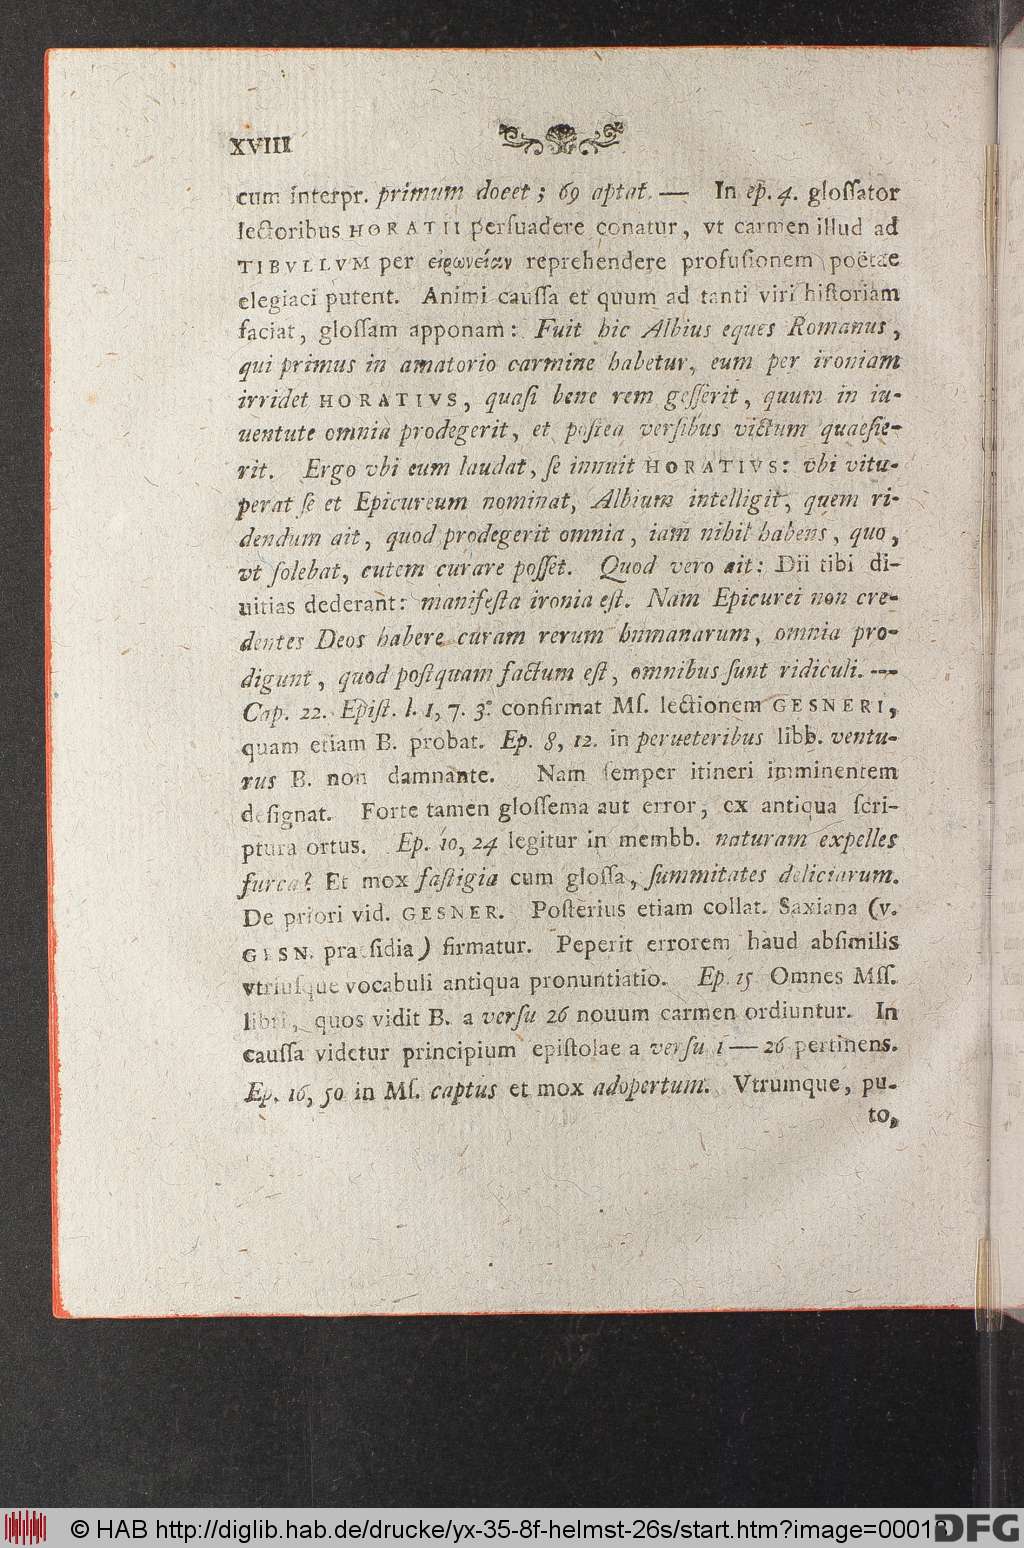 XVIII
cum interpr. primum docet; 69 aptat. — In ep. 4. gloſſator
lectoribus HORATII perſuadere conatur, vt carmen illud ad
TIBVLLVM per εἰρωνείαν reprehendere profuſionem poëtae
elegiaci putent. Animi cauſſa et quum ad tanti viri hiſtoriam
faciat, gloſſam apponam: Fuit hic Albius eques Romanus,
qui primus in amatorio carmine habetur, eum per ironiam
irridet HORATIVS, quaſi bene rem geſſerit, quum in iu-
uentute omnia prodegerit, et poſtea verſibus victum quaeſie-
rit. Ergo vbi eum laudat, ſe innuit HORATIVS: vbi vitu-
perat ſe et Epicureum nominat, Albium intelligit, quem ri-
dendum ait, quod prodegerit omnia, iam nihil habens, quo,
vt ſolebat, cutem curare poſſet. Quod vero ait: Dii tibi di-
uitias dederant: manifeſta ironia eſt. Nam Epicurei non cre-
dentes Deos habere curam rerum humanarum, omnia pro-
digunt, quod poſtquam factum eſt, omnibus ſunt ridiculi. —
Cap. 22. Epiſt. l. 1, 7. 3. confirmat Mſ. lectionem GESNERI,
quam etiam B. probat. Ep. 8, 12. in perueteribus libb. ventu-
rus B. non damnante. Nam ſemper itineri imminentem
deſignat. Forte tamen gloſſema aut error, ex antiqua ſcri-
ptura ortus. Ep. 10, 24 legitur in membb. naturam expelles
furca? Et mox faſtigia cum gloſſa, ſummitates deliciarum.
De priori vid. GESNER. Poſterius etiam collat. Saxiana (v.
GESN. praeſidia) firmatur. Peperit errorem haud abſimilis
vtriuſque vocabuli antiqua pronuntiatio. Ep. 15 Omnes Mſſ.
libri, quos vidit B. a verſu 26 nouum carmen ordiuntur. In
cauſſa videtur principium epiſtolae a verſu 1—26 pertinens.
Ep. 16, 50 in Mſ. captus et mox adopertum. Vtrumque, pu-
to,
© HAB http://diglib.hab.de/drucke/yx-35-8f-helmst-26s/start.htm?image=00018
DFG